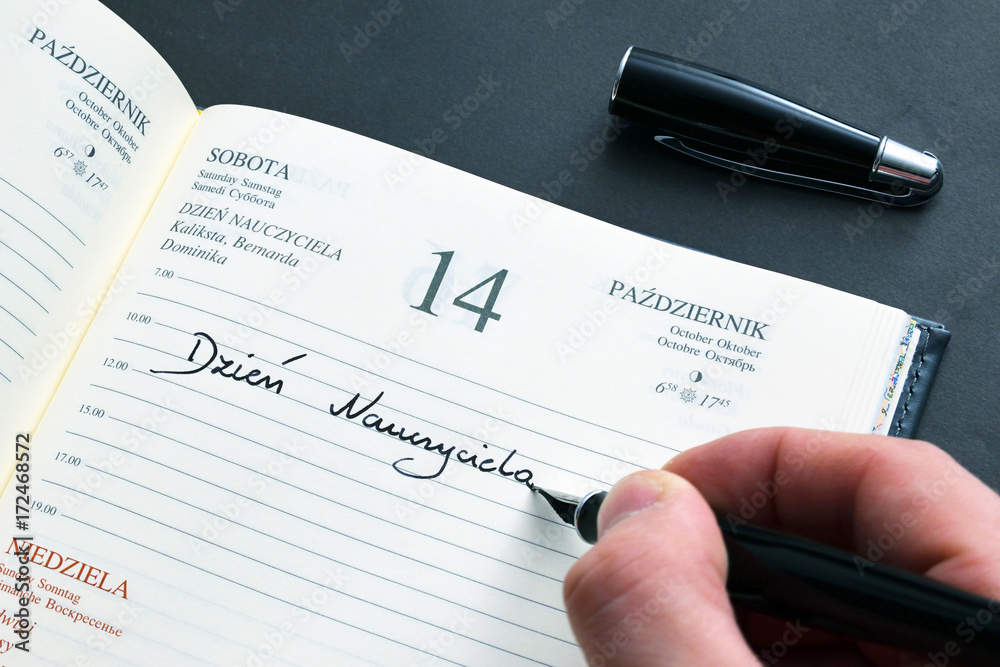 PAŹDZIERNIK
October Oktober
Octobre Октябрь
6 57 17 47
SOBOTA
Saturday Samstag
Samedi Суббота
DZIEŃ NAUCZYCIELA
Kaliksta, Bernarda
Dominika
14
PAŹDZIERNIK
October Oktober
Octobre Октябрь
6 58 17 45
7.00
10.00
12.00
15.00
17.00
19.00
Dzień Nauczyciela
NIEDZIELA
Sunday Sonntag
Воскресенье
Adobe Stock | #172468572